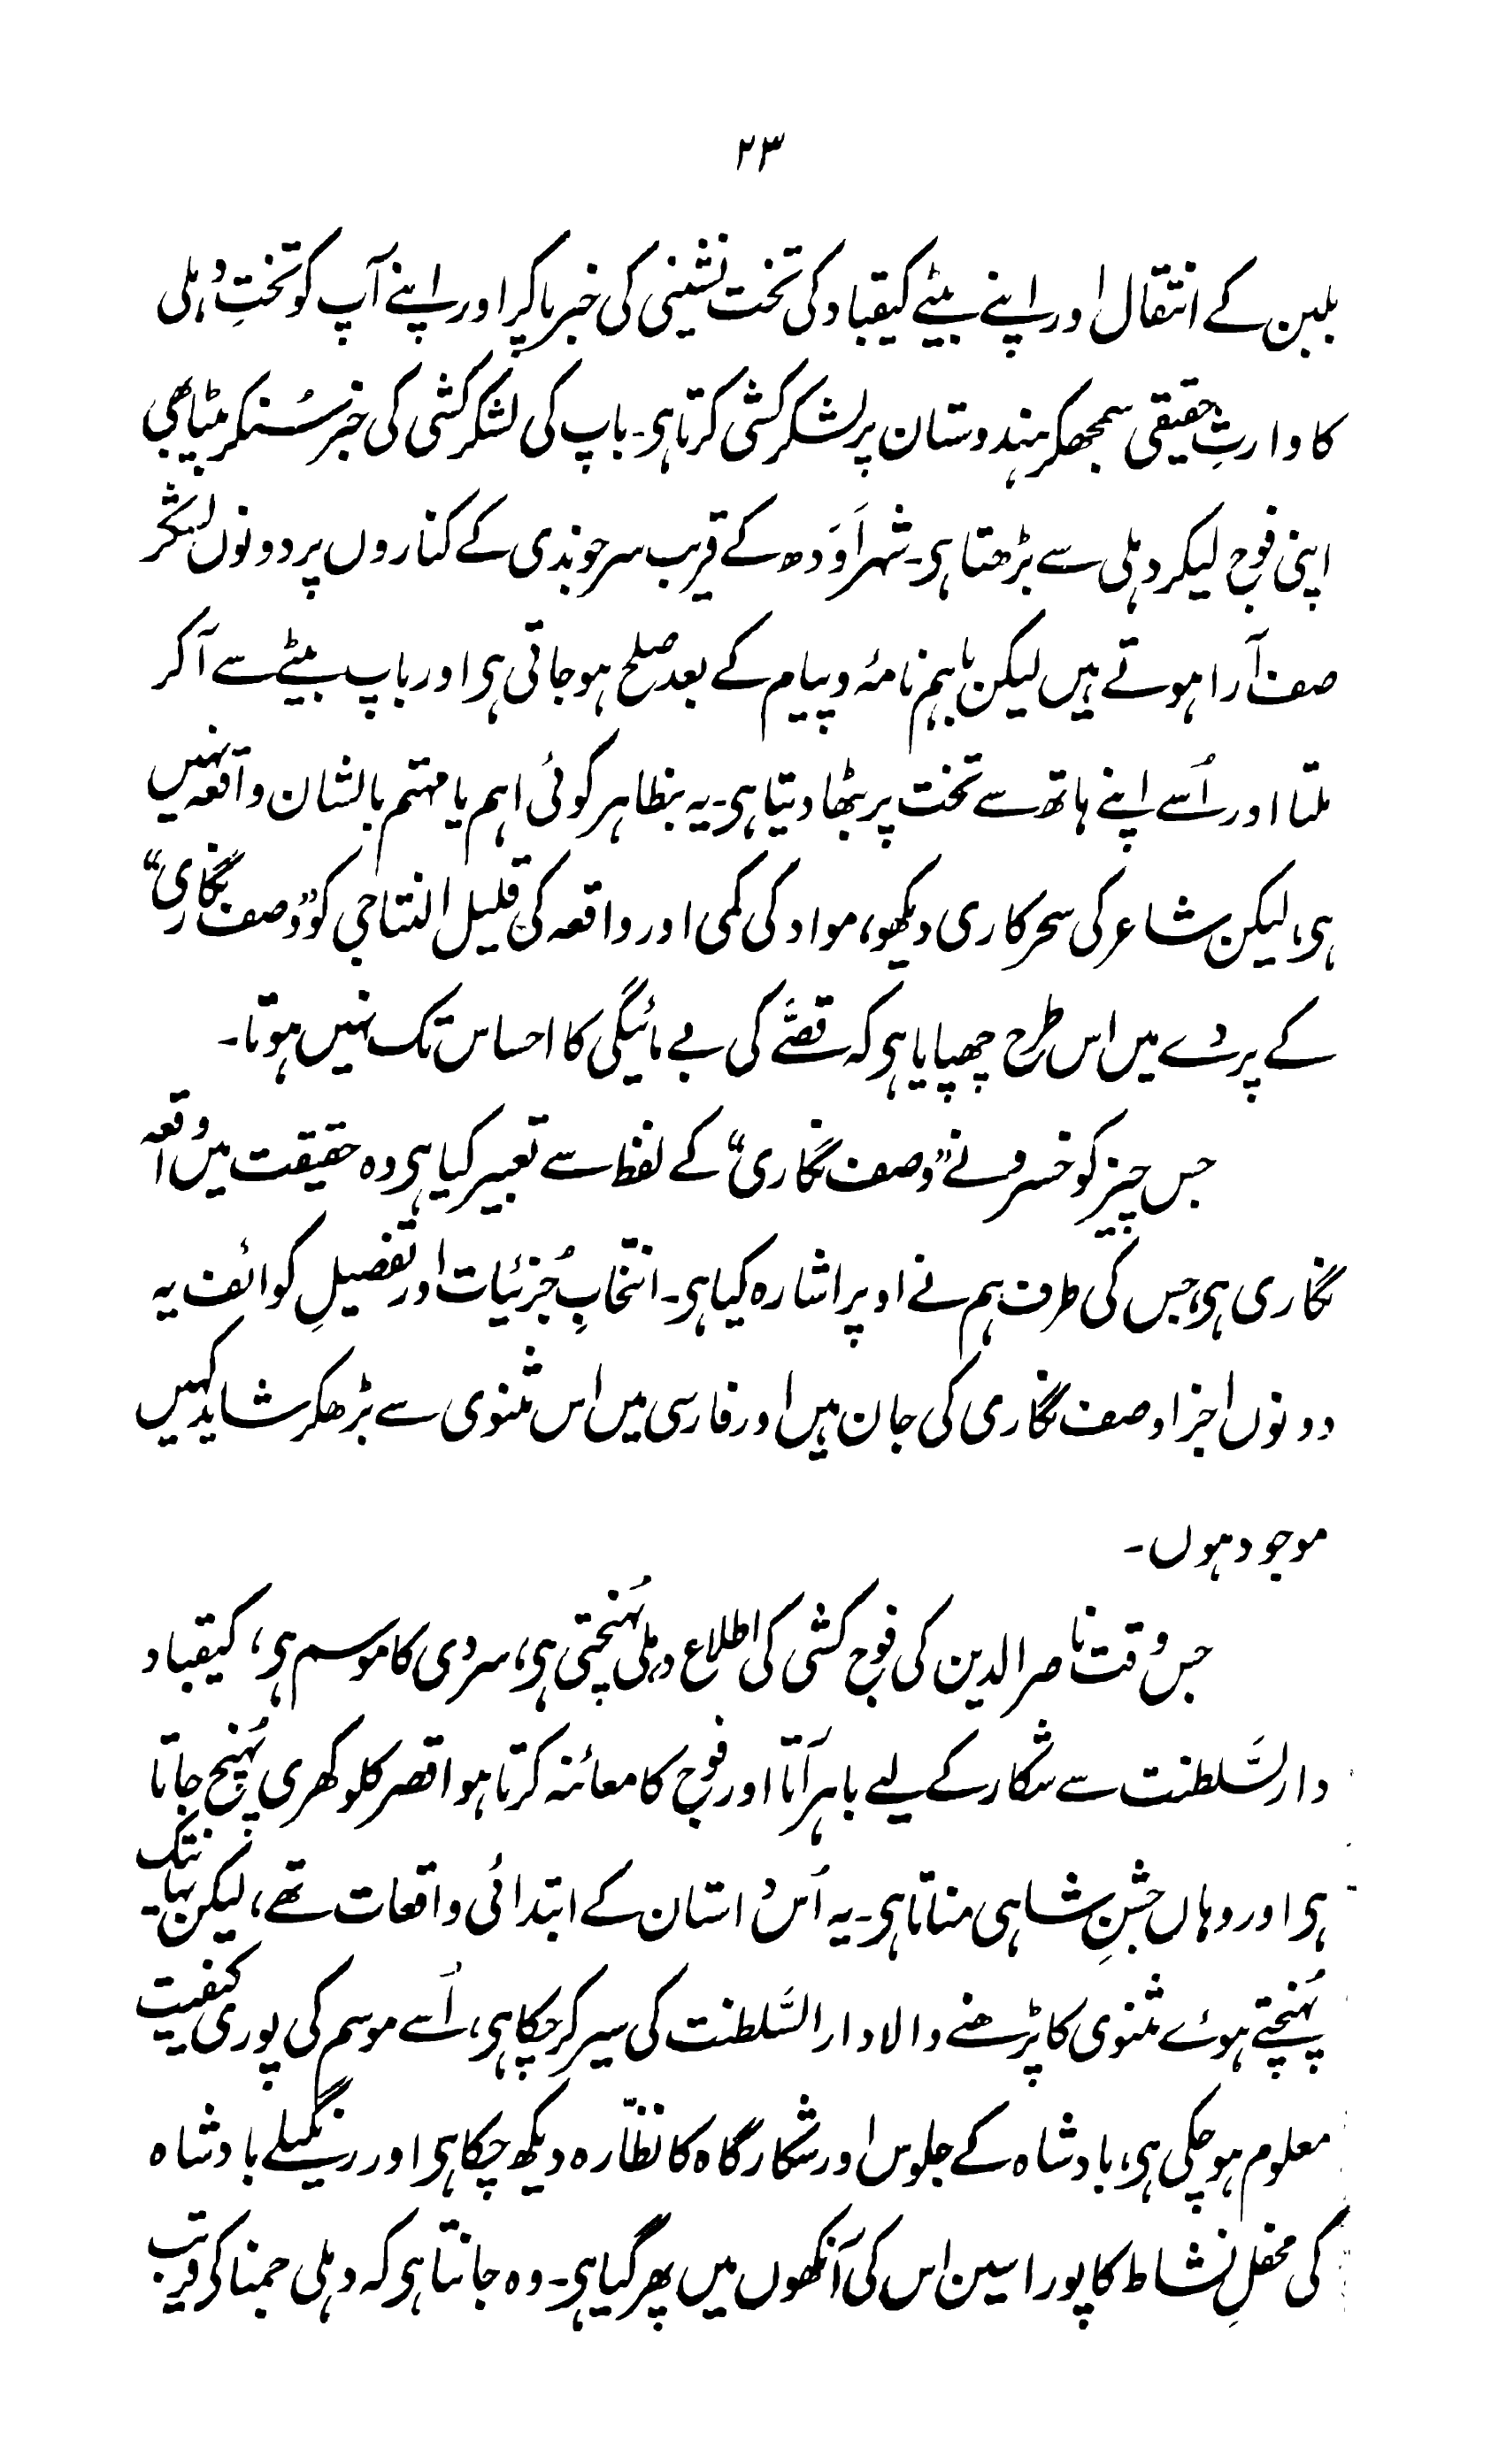 ۲۳
بلبن کے انتقال اور اپنے بیٹے کیقباد کی تخت نشینی کی خبر پاکر اور اپنے آپ کو تختِ دہلی
کا وارثِ حقیقی سمجھکر ہندوستان پر لشکر کشی کرتا ہی۔ باپ کی لشکر کشی کی خبر سُنکر بیٹا بھی
اپنی فوج لیکر دہلی سے بڑھتا ہی۔ شہر اَوَدھ کے قریب سرجو ندی کے کناروں پر دونوں لشکر
صف آرا ہوتے ہیں لیکن باہم نامۂ و پیام کے بعد صلح ہو جاتی ہی اور باپ بیٹے سے آکر
ملتا اور اُسے اپنے ہاتھ سے تخت پر بٹھا دیتا ہی۔ یہ بظاہر کوئی اہم یا مہتم بالشان واقعہ نہیں
ہی، لیکن شاعر کی سحر کاری دیکھو، مواد کی کمی اور واقعہ کی قلیل النتاجی کو ”وصف نگاری“
کے پردے میں اس طرح چھپایا ہی کہ قصّے کی بے مائیگی کا احساس تک نہیں ہوتا۔
جس چیز کو خسرو نے ”وصف نگاری“ کے لفظ سے تعبیر کیا ہی وہ حقیقت میں واقعہ
نگاری ہی، جس کی طرف ہم نے اوپر اشارہ کیا ہی۔ انتخابِ جُزئیات اور تفصیلِ کوائف یہ
دونوں اجزا وصف نگاری کی جان ہیں اور فارسی میں اس مثنوی سے بڑھکر شاید کہیں
موجود ہوں۔
جس وقت ناصر الدین کی فوج کشی کی اطلاع دہلی پُہنچتی ہی، سردی کا موسم ہی، کیقباد
دار السَّلطنت سے شکار کے لیے باہر آتا اور فوج کا معائنہ کرتا ہوا قصر کلوکھری پُہنچ جاتا
ہی اور وہاں جشنِ شاہی مناتا ہی۔ یہ اُس داستان کے ابتدائی واقعات تھے، لیکن یہانتک
پُہنچتے ہوئے مثنوی کا پڑھنے والا دار السَّلطنت کی سیر کر چکا ہی، اُسے موسم کی پوری کیفیت
معلوم ہو چکی ہی، بادشاہ کے جلوس اور شکارگاہ کا نظّارہ دیکھ چکا ہی اور رنگیلے بادشاہ
کی محفلِ نشاط کا پورا سین اس کی آنکھوں میں پھر گیا ہی۔ وہ جانتا ہی کہ دہلی جمنا کی قربت